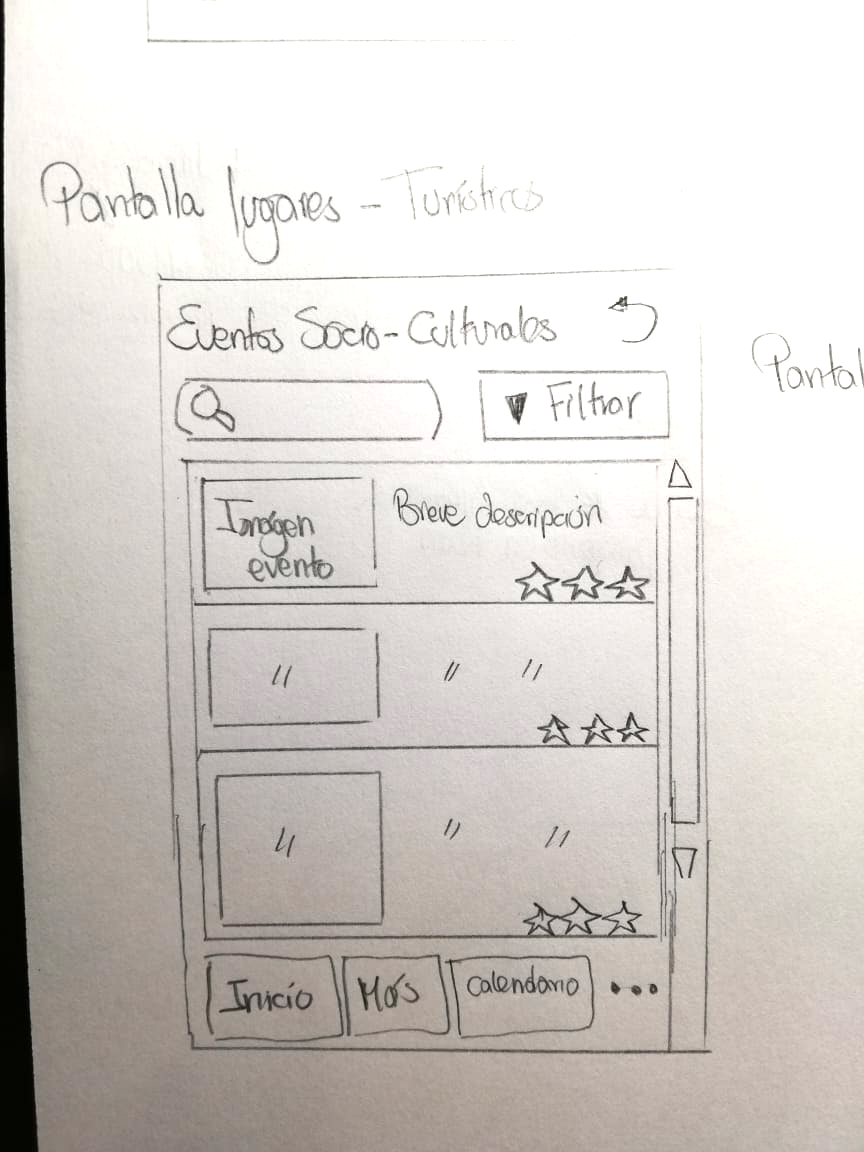 Pantalla lugares - Turísticos
Eventos Socio-Culturales
Pantal
Filtrar
Imágen
evento
Breve descripción
" " "
" " "
Inicio Más Calendario ...